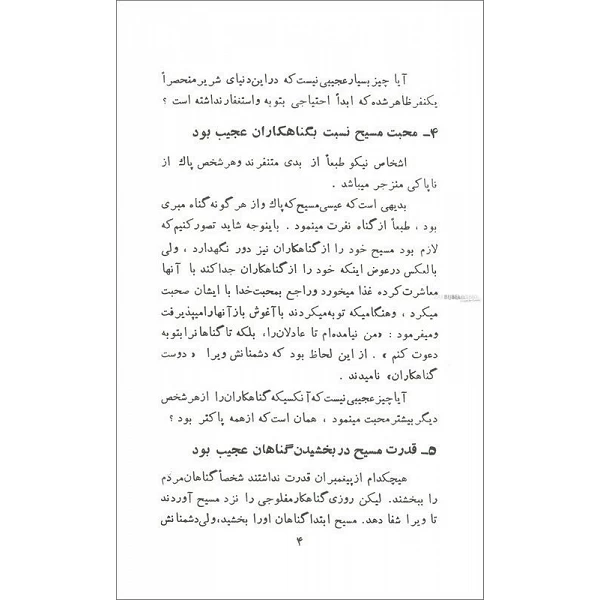 آیا چیز بسیار عجیبی نیست که در این دنیای شریر منحصراً
یکنفر ظاهر شده که ابداً احتیاجی بتوبه و استغفار نداشته است ؟
۴ـ محبت مسیح نسبت بگناهکاران عجیب بود
اشخاص نیکو طبعاً از بدی متنفرند وهر شخص پاک از
ناپاکی منزجر میباشد .
بدیهی است که عیسی مسیح که پاک و از هر گونه گناه مبری
بود ، طبعاً از گناه نفرت مینمود . باینوجه شاید تصور کنیم که
لازم بود مسیح خود را از گناهکاران نیز دور نگهدارد ، ولی
بالعکس درعوض اینکه خود را از گناهکاران جدا کند با آنها
معاشرت کرده غذا میخورد و راجع بمحبت خدا با ایشان صحبت
میکرد ، وهنگامیکه توبه میکردند با آغوش باز آنها را میپذیرفت
و میفرمود : «من نیامده‌ام تا عادلان را، بلکه تا گناهانرا بتوبه
دعوت کنم » . از این لحاظ بود که دشمنانش ویرا « دوست
گناهکاران» نامیدند .
آیا چیز عجیبی نیست که آنکسیکه گناهکاران را از هر شخص
دیگر بیشتر محبت مینمود ، همان است که از همه پاکتر بود ؟
۵ـ قدرت مسیح در بخشیدن گناهان عجیب بود
هیچکدام از پیغمبران قدرت نداشتند شخصاً گناهان مردم
را ببخشند. لیکن روزی گناهکار مفلوجی را نزد مسیح آوردند
تا ویرا شفا دهد. مسیح ابتدا گناهان اورا بخشید، ولی دشمنانش
۴